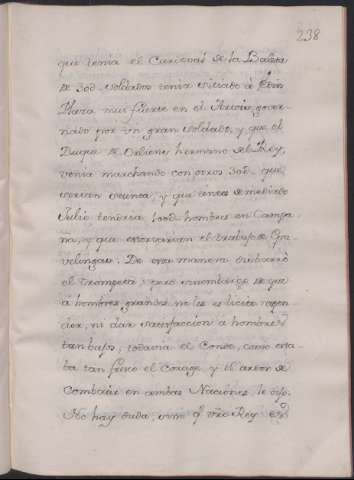 238
que tenia el Cardenal de la Baleta
de 30d. soldados tenia sitiado á
Plaza mui fuerte en el Artois, gover-
nado por un gran soldado, y que el
Duque de Orliens hermano del Rey,
venia marchando con otros 30d. que
serian sesenta, y que antes de mediado
Julio tendria 100d hombres en Campa-
ña, y que escusarian el trabajo de Gra-
velingas. De esta manera
el Trompeta; pero sin embargo de que
á hombres grandes no les es licito repren-
der, ni dar satisfaccion á hombres
tan bajos, todavia el Conde, como esta-
ba tan fixo el corage y el ardor de
Combatir en ambas Naciones, le dijo.
No hay duda, sino q. vro Rey es